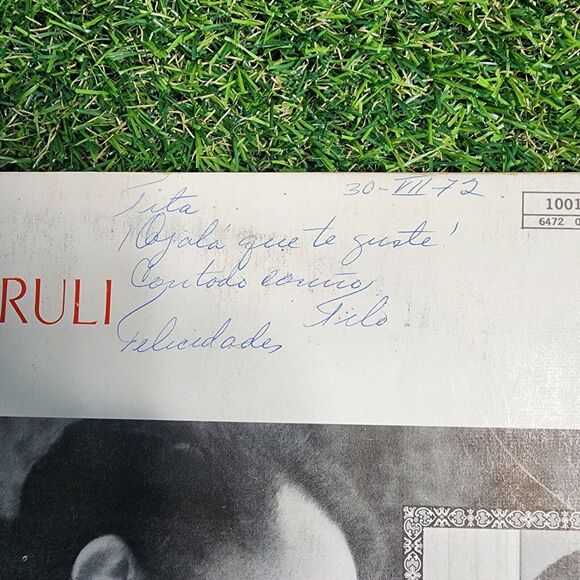 30-VII-72
Tita
¡Ojalá que te guste!
Con todo cariño,
Tilo
Felicidades
RULI
1001
6472 0